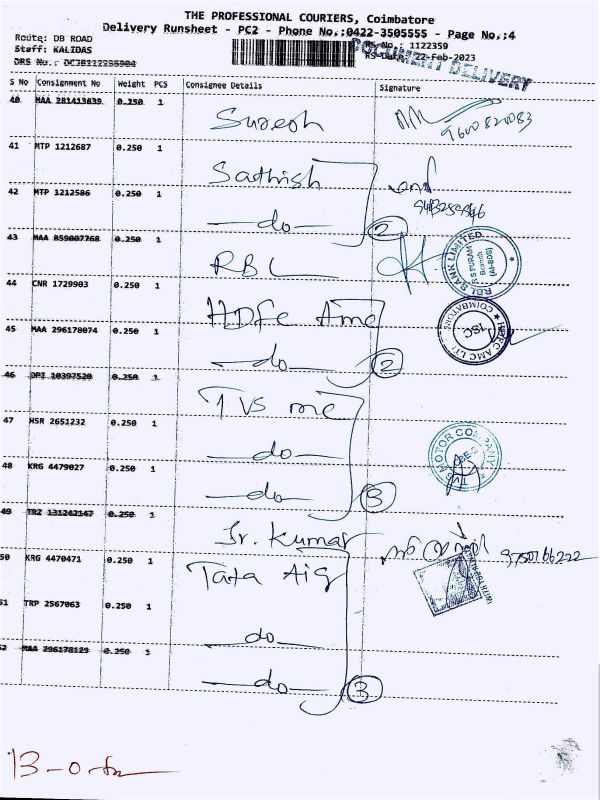 THE PROFESSIONAL COURIERS, Coimbatore
Delivery Runsheet - PC2 - Phone No.:0422-3505555 - Page No.:4
Route: DB ROAD
RS No.: 1122359
Staff: KALIDAS
RS Date: 22-Feb-2023
DOCUMENT DELIVERY
DRS No.:
S No Consignment No Weight PCS Consignee Details Signature
40 MAA 281413039 0.250 1 Suresh
41 MTP 1212687 0.250 1 Sathish
42 MTP 1212586 0.250 1 —do— 2
43 MAA 859007768 0.250 1 RBL
RBL BANK LIMITED
RS PURAM
Branch
44 CNR 1729903 0.250 1 HDFC Amc
HDFC AMC LTD COIMBATORE
ISC
45 MAA 296178074 0.250 1 —do— 2
46 DPI 10397520 0.250 1 TVS mc
47 HSR 2651232 0.250 1 —do—
MOTOR COMPANY
48 KRG 4479027 0.250 1 —do— 3
49 TRZ 131242147 0.250 1 Sr. Kumar
9750166222
50 KRG 4470471 0.250 1 Tata Aig
51 TRP 2567063 0.250 1 —do—
52 MAA 296178129 0.250 1 —do— 3